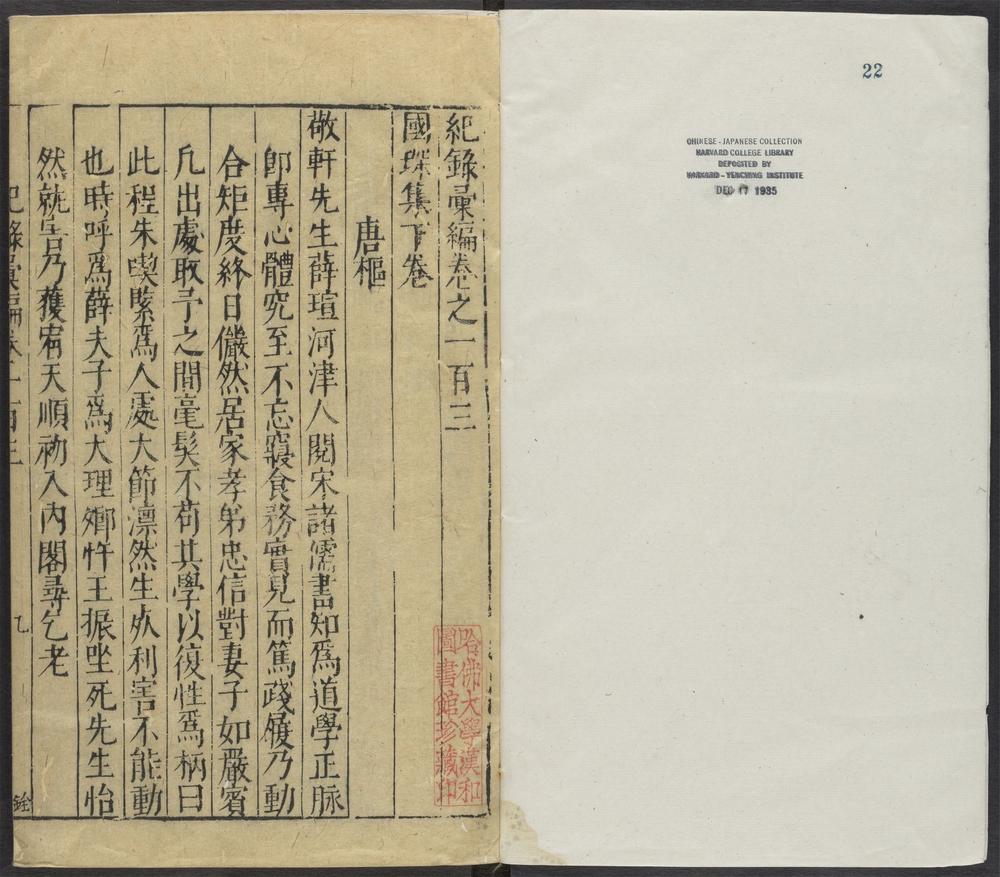 22
CHINESE - JAPANESE COLLECTION
HARVARD COLLEGE LIBRARY
DEPOSITED BY
HARVARD - YENCHING INSTITUTE
DEC 17 1935
紀錄彙編卷之一百三
國琛集下卷
唐樞
敬軒先生薛瑄河津人閱宋諸濡書知爲道學正脉
卽專心體究至不忘寢食務實見而篤踐履乃動
合矩度終日儼然居家孝弟忠信對妻子如嚴賓
凡出處取予之間毫髮不苟其學以復性爲柄曰
此程朱喫緊爲人處大節凛然生死利害不能動
也時呼爲薛夫子爲大理卿忤王振坐死先生怡
然就
乃獲宥天順初入內閣尋乞老
紀錄彙編卷一百三
銓
哈佛大學漢和
圖書館珍藏印